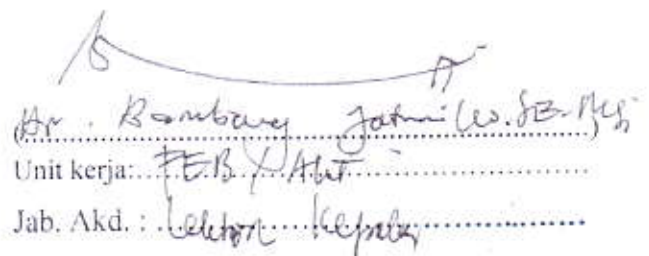 (Dr. Bambang Jatmiko. SE. MSi)
Unit kerja: FEB / Akt
Jab. Akd. : Lektor Kepala